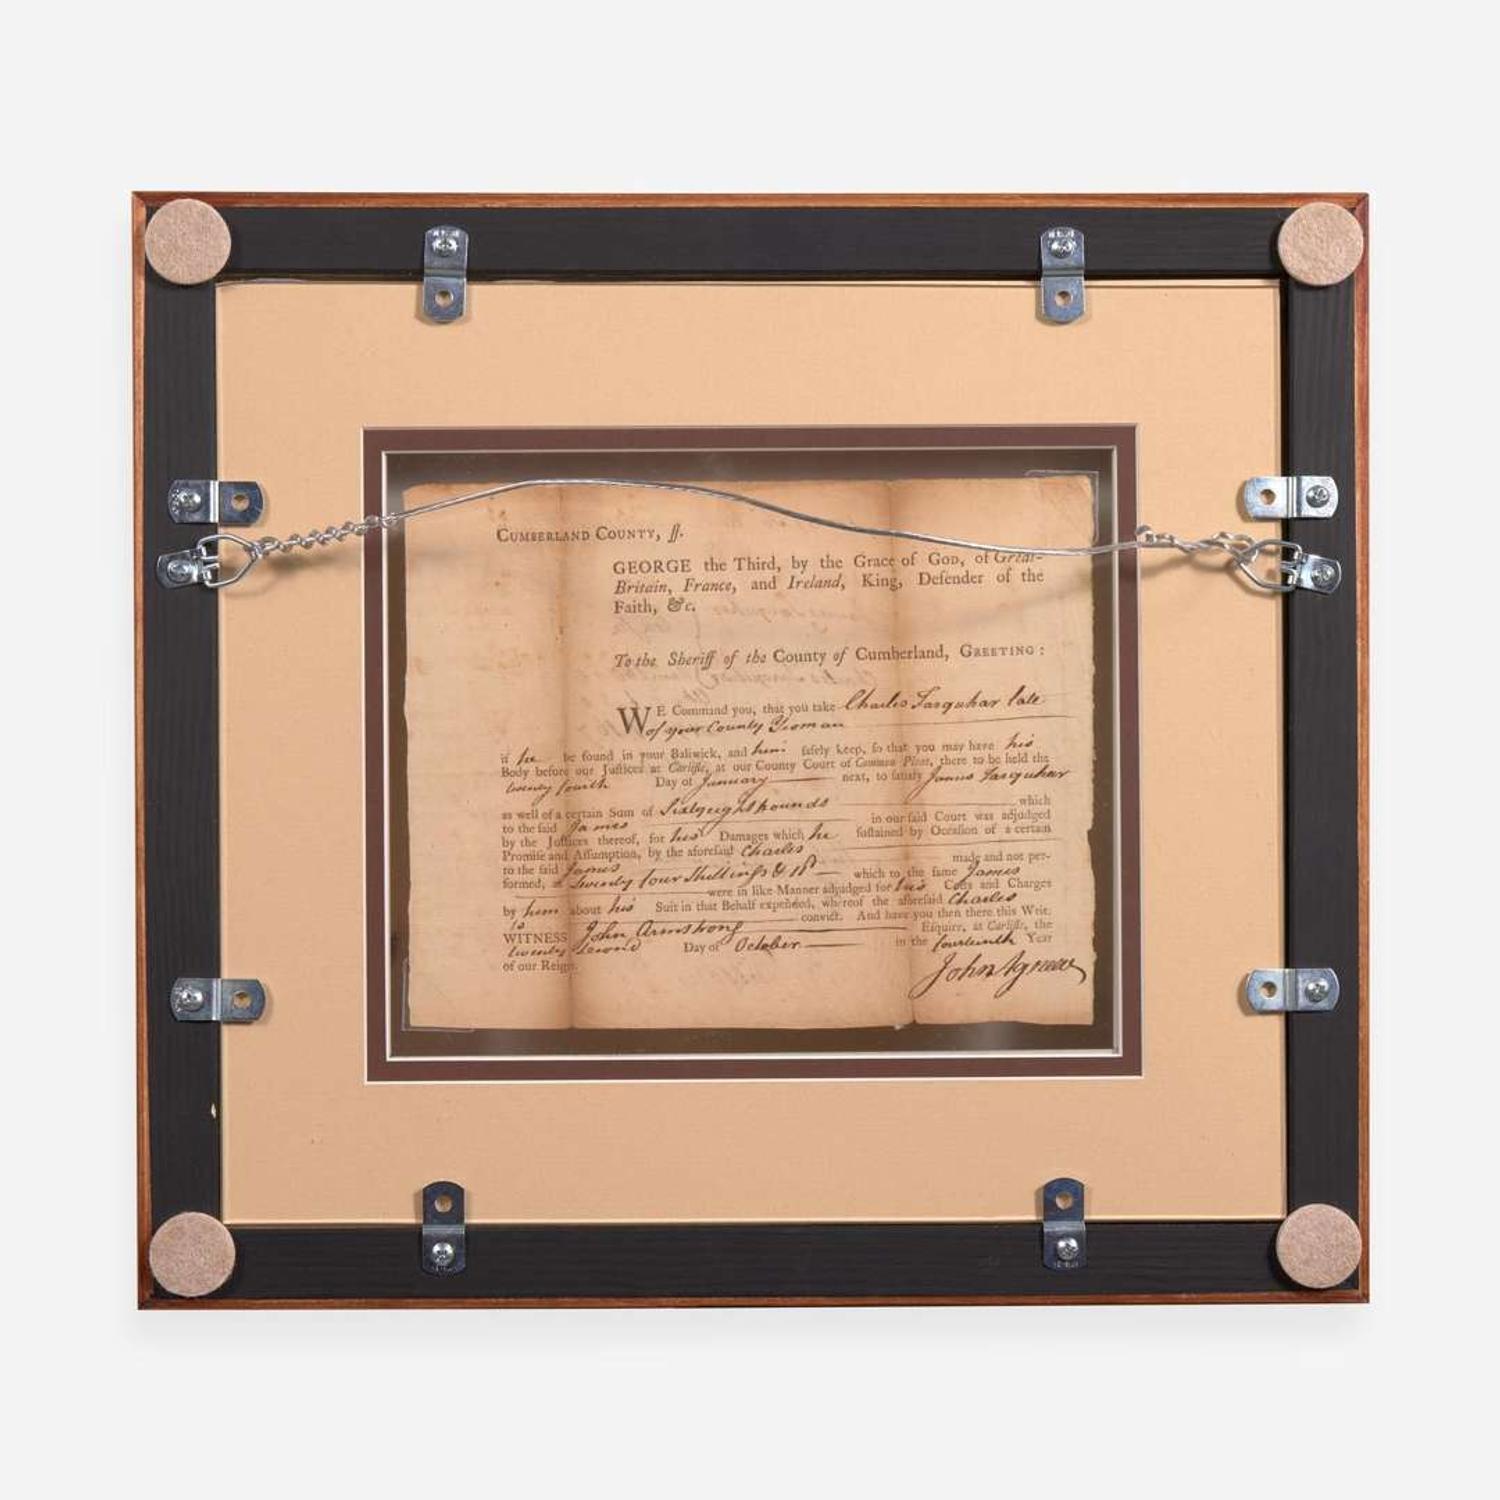 CUMBERLAND COUNTY, ſſ.
GEORGE the Third, by the Grace of GOD, of Great-
Britain, France, and Ireland, King, Defender of the
Faith, &c.
To the Sheriff of the County of Cumberland, GREETING:
WE Command you, that you take Charles Farquhar late
of your County Yeoman
if he be found in your Bailiwick, and him ſafely keep, ſo that you may have his
Body before our Juſtices at Carliſle, at our County Court of Common Pleas, there to be held the
twenty fourth Day of January next, to ſatisfy James Farquhar
as well of a certain Sum of Sixty eight pounds which
to the ſaid James in our ſaid Court was adjudged
by the Juſtices thereof, for his Damages which he ſuſtained by Occaſion of a certain
Promiſe and Aſſumption, by the aforeſaid Charles
to the ſaid James made and not per-
formed, as twenty four Shillings & which to the ſame James
were in like Manner adjudged for his Coſts and Charges
by him about his Suit in that Behalf expended, whereof the aforeſaid Charles
is convict. And have you then there this Writ.
WITNESS John Armstrong Eſquire, at Carliſle, the
twenty second Day of October in the fourteenth Year
of our Reign.
John Agnew